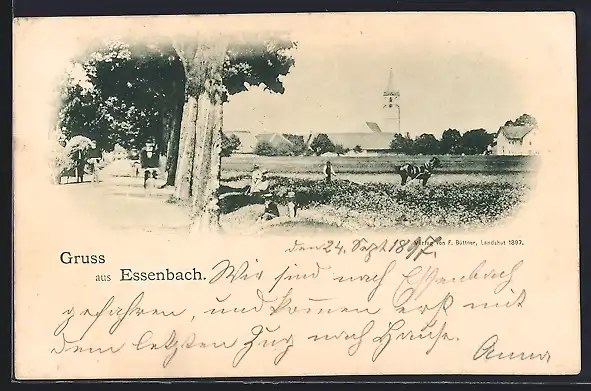 Verlag von F. Büttner, Landshut 1897.
den 24. Sept 1897.
Gruss
aus Essenbach.
Wir sind nach Essenbach
gefahren, und kommen erst mit
dem letzten Zug nach Hause.
Anna